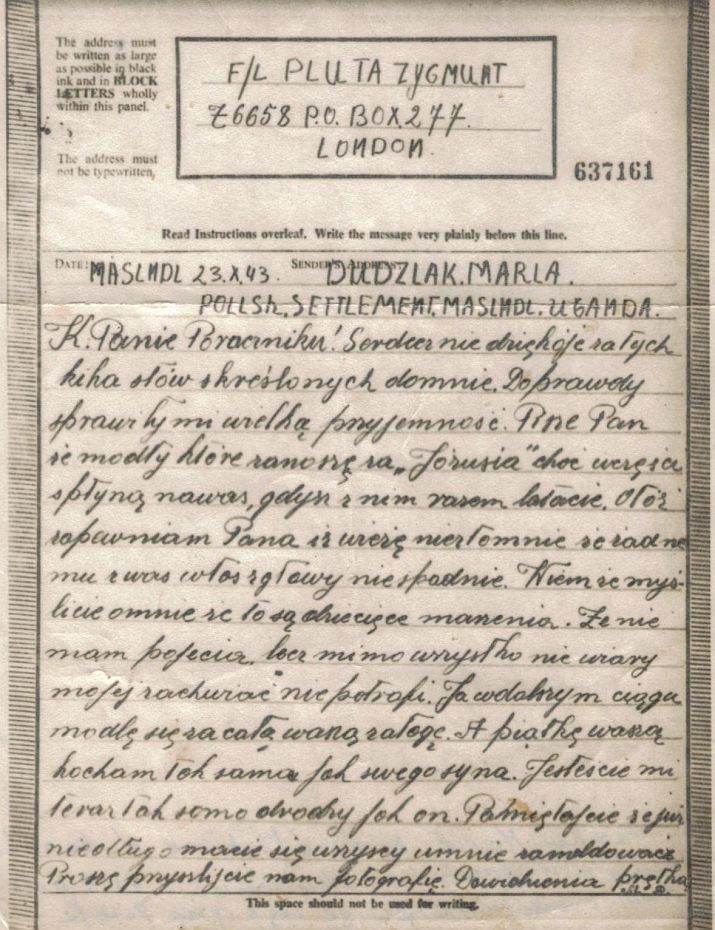 The address must
be written as large
as possible in black
ink and in BLOCK
LETTERS wholly
within this panel.
The address must
not be typewritten.
F/L PLUTA ZYGMUNT
Z6658 P.O. BOX 277.
LONDON.
637161
Read Instructions overleaf. Write the message very plainly below this line.
DATE: MASINDI 23.X.43. SENDER'S ADDRESS: DUDZIAK. MARIA.
POLISH. SETTLEMENT. MASINDI. UGANDA.
K. Panie Poruczniku! Serdecznie dziękóje za tych
kilka słów skreślonych domnie. Doprawdy
sprawiły mi wielką przyjemność. Pisze Pan
że modły które zanoszę za „Józusia" choć wczęści
spłyną nawas, gdysz z nim razem latacie. Otóż
zapewniam Pana iż wierzę niezłomnie że żadne
mu zwas włos zgłowy nie spadnie. Wiem że myś-
licie omnie że to są dziecięce marzenia. Że nie
mam pojęcia, lecz mimo wszystko nic wiary
mojej zachwiać nie potrafi. Ja wdalszym ciągu
modlę się za całą waszą załogę. A piątkę waszą
kocham tak samo jak swego syna. Jesteście mi
teraz tak samo drodzy jak on. Pamiętajcie że już
niedługo macie się wszyscy umnie zameldować
Proszę przyszlijcie nam fotografię. Dowidzenia prętka
M. D.
This space should not be used for writing.